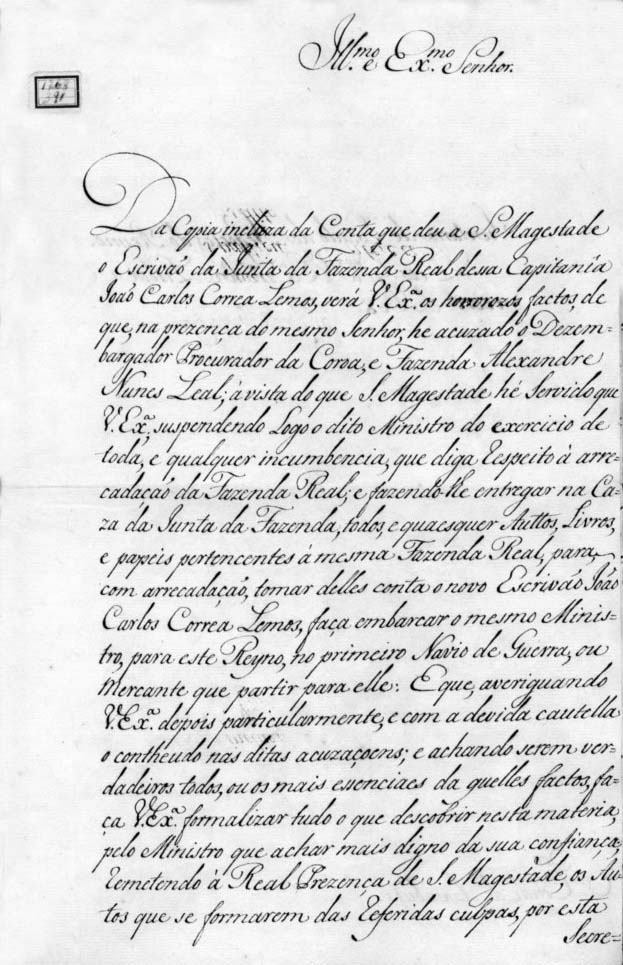 Ill.mo e Ex.mo Senhor.
Da Copia incluza da Conta que deu a S. Magestade
o Escrivaõ da Junta da Fazenda Real dessa Capitanîa
Joaõ Carlos Correa Lemos, verá V. Ex.a os horrorozos factos, de
que, na prezença do mesmo Senhor, he acuzado o Dezem-
bargador Procurador da Coroa, e Fazenda Alexandre
Nunes Leal; á vista do que S. Magestade hé Servido que
V. Ex.a, suspendendo Logo o dito Ministro do exercicio de
toda, e qualquer incumbencia, que diga Respeito à arre-
cadaçaõ da Fazenda Real; e fazendo-lhe entregar na Ca-
za da Junta da Fazenda, todos, e quaesquer Auttos, Livros,
e papéis pertencentes à mesma Fazenda Real, para,
com arrecadaçaõ, tomar delles conta o novo Escrivaõ Joaõ
Carlos Corrêa Lemos, faça embarcar o mesmo Minis-
tro, para este Reyno, no primeiro Navio de Guerra, ou
Mercante que partir para elle: E que, averiguando
V. Ex.a depois particularmente, e com a devida cautella
o contheudo nas ditas acuzaçoens; e achando serem ver-
dadeiros todos, ou os mais essenciaes da quelles factos, fa-
ça V. Ex.a formalizar tudo o que descobrir nesta materia,
pelo Ministro que achar mais digno da sua confiança,
Remetendo à Real Prezença de S. Magestade, os Au-
tos que se formarem das Referidas culpas, por esta
Secre=